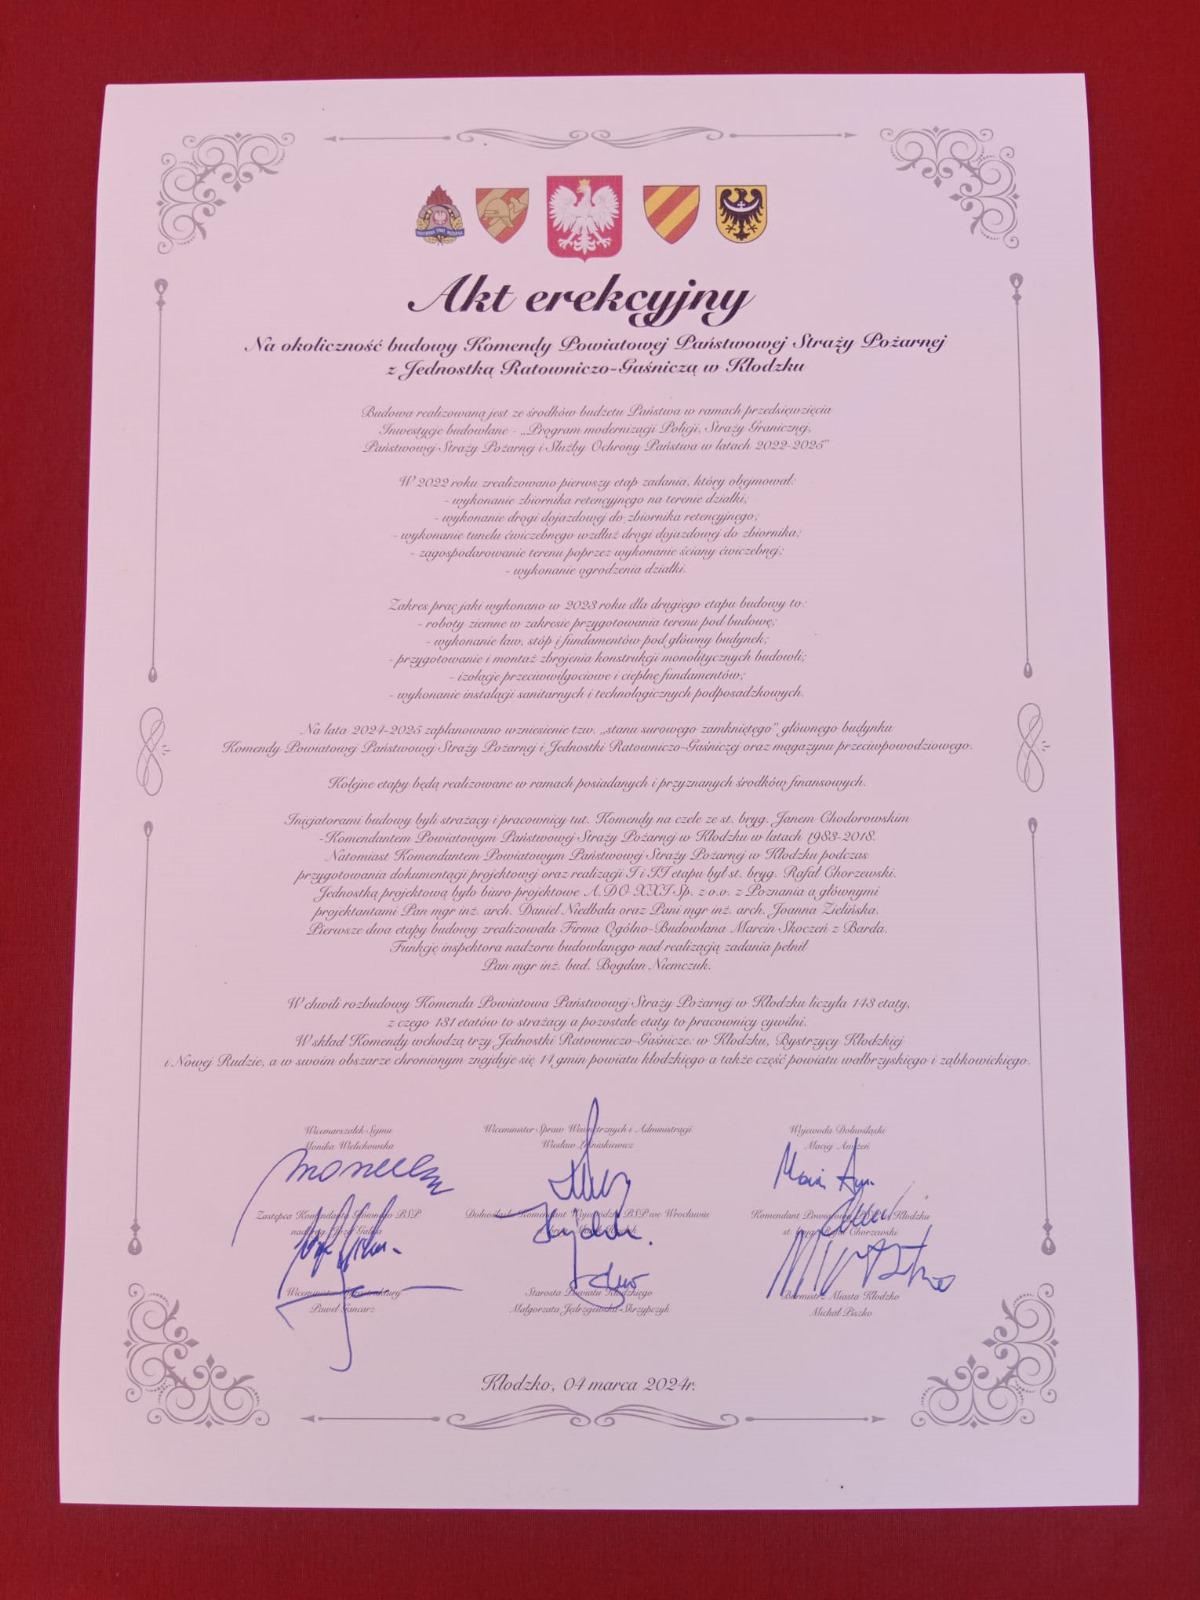 Akt erekcyjny
Na okoliczność budowy Komendy Powiatowej Państwowej Straży Pożarnej
z Jednostką Ratowniczo-Gaśniczą w Kłodzku
Budowa realizowaną jest ze środków budżetu Państwa w ramach przedsięwzięcia
Inwestycje budowlane - „Program modernizacji Policji, Straży Granicznej,
Państwowej Straży Pożarnej i Służby Ochrony Państwa w latach 2022-2025"
W 2022 roku zrealizowano pierwszy etap zadania, który obejmował:
- wykonanie zbiornika retencyjnego na terenie działki;
- wykonanie drogi dojazdowej do zbiornika retencyjnego;
- wykonanie tunelu ćwiczebnego wzdłuż drogi dojazdowej do zbiornika;
- zagospodarowanie terenu poprzez wykonanie ściany ćwiczebnej;
- wykonanie ogrodzenia działki.
Zakres prac jaki wykonano w 2023 roku dla drugiego etapu budowy to:
- roboty ziemne w zakresie przygotowania terenu pod budowę;
- wykonanie ław, stóp i fundamentów pod główny budynek;
- przygotowanie i montaż zbrojenia konstrukcji monolitycznych budowli;
- izolacje przeciwwilgociowe i cieplne fundamentów;
- wykonanie instalacji sanitarnych i technologicznych podposadzkowych.
Na lata 2024-2025 zaplanowano wzniesienie tzw. „stanu surowego zamkniętego" głównego budynku
Komendy Powiatowej Państwowej Straży Pożarnej i Jednostki Ratowniczo-Gaśniczej oraz magazynu przeciwpowodziowego.
Kolejne etapy będą realizowane w ramach posiadanych i przyznanych środków finansowych.
Inicjatorami budowy byli strażacy i pracownicy tut. Komendy na czele ze st. bryg. Janem Chodorowskim
-Komendantem Powiatowym Państwowej Straży Pożarnej w Kłodzku w latach 1983-2018.
Natomiast Komendantem Powiatowym Państwowej Straży Pożarnej w Kłodzku podczas
przygotowania dokumentacji projektowej oraz realizacji I i II etapu był st. bryg. Rafał Chorzewski.
Jednostką projektową było biuro projektowe A.DO XXI Sp. z o.o. z Poznania a głównymi
projektantami Pan mgr inż. arch. Daniel Niedbała oraz Pani mgr inż. arch. Joanna Zielińska.
Pierwsze dwa etapy budowy zrealizowała Firma Ogólno-Budowlana Marcin Skoczeń z Barda.
Funkcję inspektora nadzoru budowlanego nad realizacją zadania pełnił
Pan mgr inż. bud. Bogdan Niemczuk.
W chwili rozbudowy Komenda Powiatowa Państwowej Straży Pożarnej w Kłodzku liczyła 143 etaty,
z czego 131 etatów to strażacy a pozostałe etaty to pracownicy cywilni.
W skład Komendy wchodzą trzy Jednostki Ratowniczo-Gaśnicze: w Kłodzku, Bystrzycy Kłodzkiej
i Nowej Rudzie, a w swoim obszarze chronionym znajduje się 14 gmin powiatu kłodzkiego a także część powiatu wałbrzyskiego i ząbkowickiego.
Wicemarszałek Sejmu Wiceminister Spraw Wewnętrznych i Administracji Wojewoda Dolnośląski
Monika Wielichowska Wiesław Maciej
Zastępca Komendanta Głównego PSP Dolnośląski Komendant Wojewódzki PSP we Wrocławiu Komendant Powiatowy PSP w Kłodzku
st. bryg. Rafał Chorzewski
Wiceminister Starosta Powiatu Kłodzkiego Burmistrz Miasta Kłodzko
Paweł Gancarz Małgorzata Jędrzejewska-Skrzypczyk Michał Piszko
Kłodzko, 04 marca 2024r.